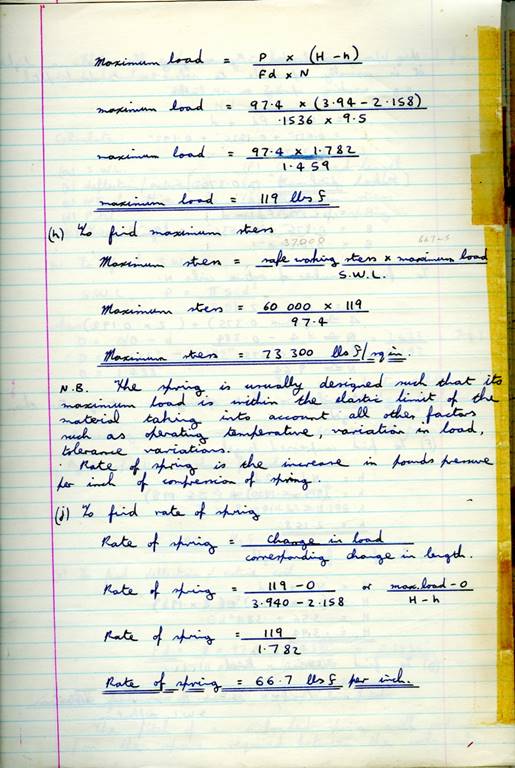 Maximum load = P x (H - h)
Fd x N
maximum load = 97.4 x (3.94 - 2.158)
.1536 x 9.5
maximum load = 97.4 x 1.782
1.459
maximum load = 119 lbs f
(h) To find maximum stress
37000
Maximum stress = safe working stess x maximum load
S.W.L.
Maximum stess = 60 000 x 119
97.4
Maximum stess = 73 300 lbs f/sq in.
N.B. The spring is usually designed such that its
maximum load is within the elastic limit of the
material taking into account all other factors
such as operating temperature, variation in load,
tolerance variations.
Rate of spring is the increase in pounds pressure
per inch of compression of spring.
(j) To find rate of spring
Rate of spring = change in load
corresponding change in length.
Rate of spring = 119 - 0 or max. load - 0
3.940 - 2.158 H - h
Rate of spring = 119
1.782
Rate of spring = 66.7 lbs f per inch.